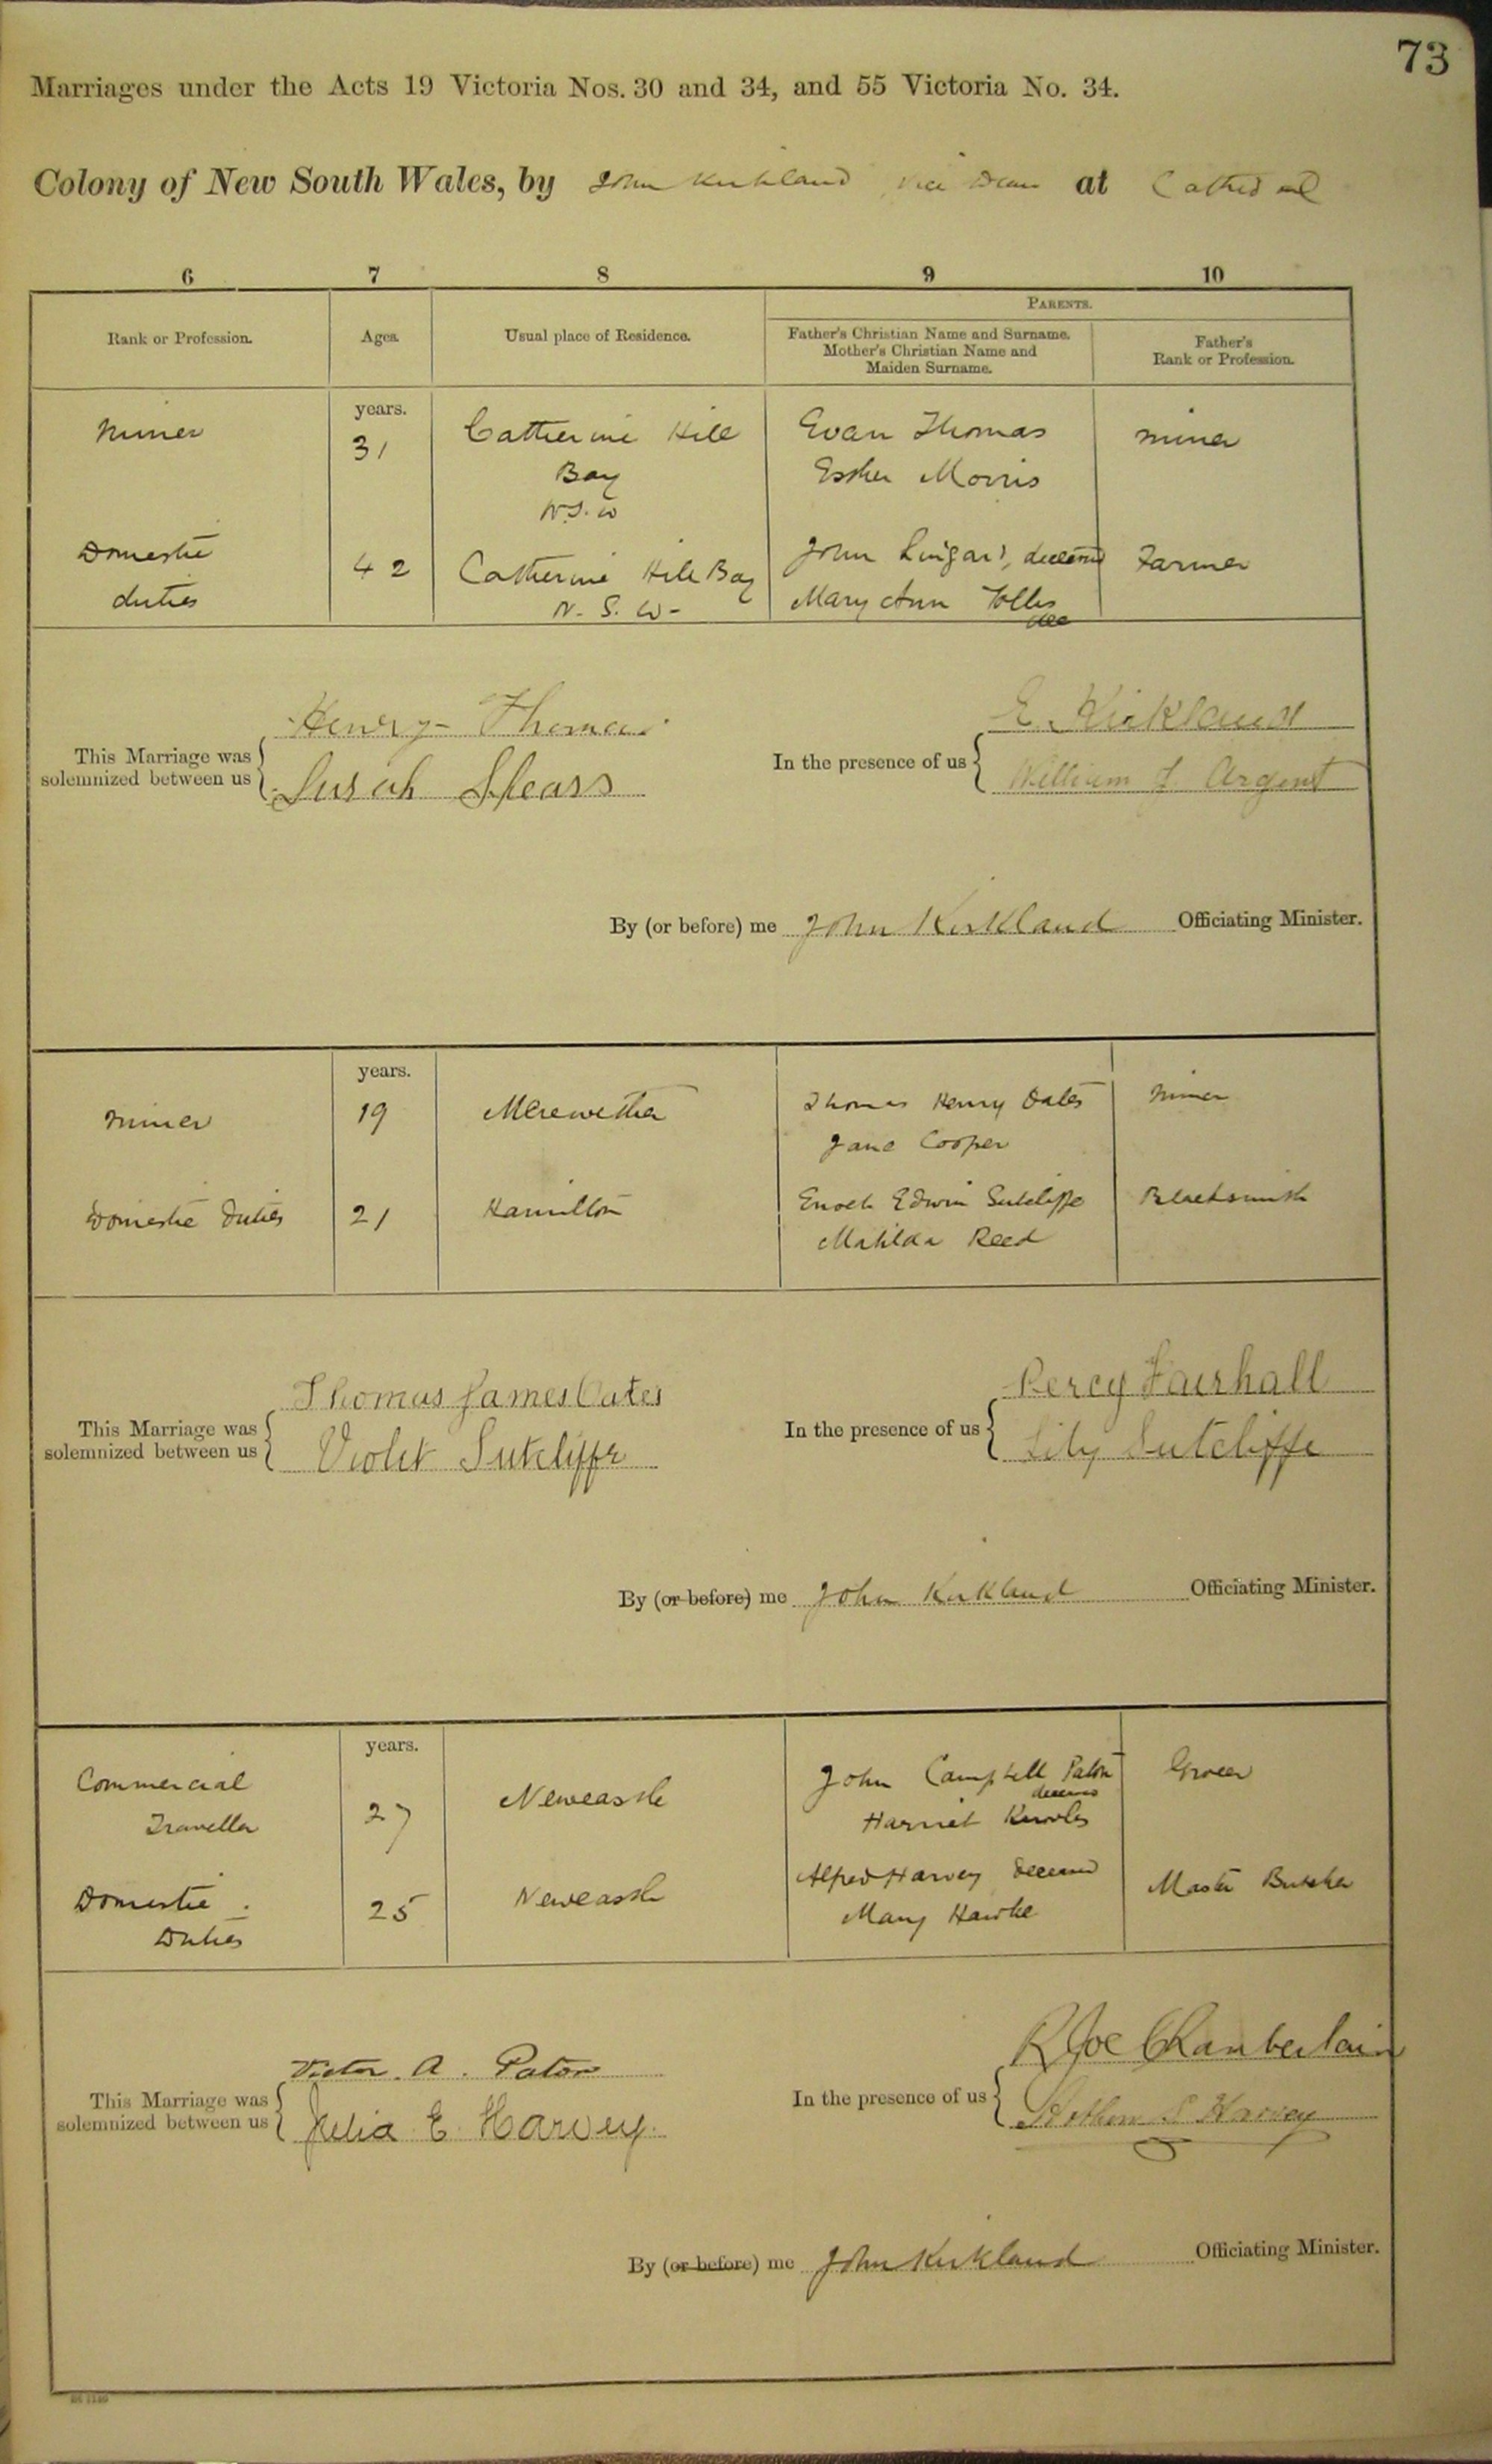 73
Marriages under the Acts 19 Victoria Nos. 30 and 34, and 55 Victoria No. 34.
Colony of New South Wales, by John Kirkland Vice Dean at Cathedral
6 7 8 9 10
PARENTS.
Rank or Profession. Ages. Usual place of Residence. Father's Christian Name and Surname. Mother's Christian Name and Maiden Surname. Father's Rank or Profession.
years.
Miner 31 Catherine Hill Evan Thomas Miner
Bay Esther Morris
N.S.W
Domestic 42 Catherine Hill Bay John deceased Farmer
duties N. S. W- Mary Ann
dec
Henry Thomas E. Kirkland
This Marriage was solemnized between us In the presence of us
Susah Spears William J. Argent
By (or before) me John Kirkland Officiating Minister.
years.
Miner 19 Merewether Thomas Henry Oates Miner
Jane Cooper
Domestic Duties 21 Hamilton Enoch Edwin Sutcliffe Blacksmith
Matilda Reed
Thomas James Oates Percy Fairhall
This Marriage was solemnized between us In the presence of us
Violet Sutcliffe Lily Sutcliffe
By (or before) me John Kirkland Officiating Minister.
years.
Commercial Newcastle John Campbell Paton Grocer
deceased
Traveller 27 Harriet Knowles
Domestic 25 Newcastle Alfred Harvey deceased Master Butcher
Duties Mary Hawke
Victor. A. Paton R Joe Chamberlain
This Marriage was solemnized between us In the presence of us
Julia E. Harvey. Harvey
By (or before) me John Kirkland Officiating Minister.